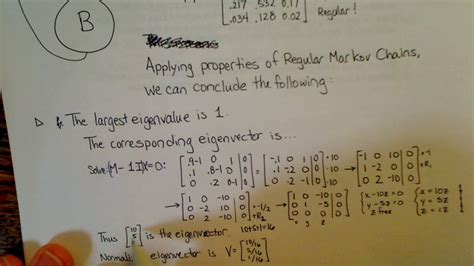 .217 .532 0.17
.034 .128 0.02 Regular!
B
Applying properties of Regular Markov Chains,
we can conclude the following:
The largest eigenvalue is 1.
The corresponding eigenvector is...
Solve (M-1I)X=0: [.9-1 0 1 | 0; .1 .8-1 0 | 0; 0 .2 0-1 | 0] = [-.1 0 1 | 0; .1 -.2 0 | 0; 0 .2 -1 | 0] → [-1 0 10 | 0; 1 -2 0 | 0; 0 2 -10 | 0]
→ [1 0 -10 | 0; 0 -2 10 | 0; 0 2 -10 | 0] → [1 0 -10 | 0; 0 1 -5 | 0; 0 0 0 | 0] { x-10z=0 y-5z=0 z free { x=10z y=5z z=z
x y z
Thus [10 5 1] is the eigenvector. 10+5+1=16
eigenvector is V= [10/16 5/16 1/16]